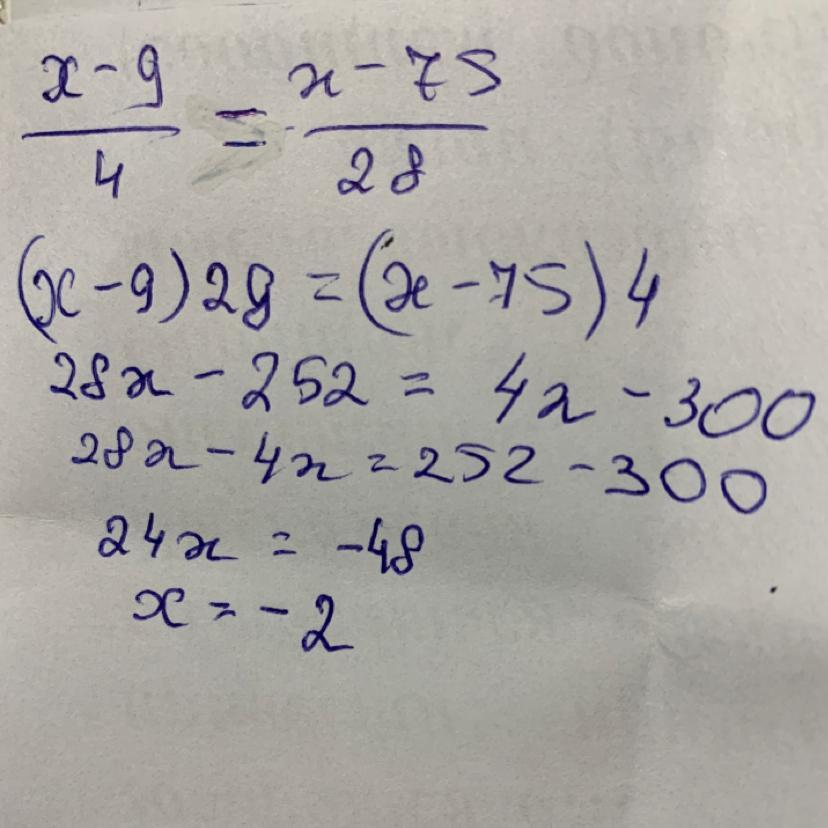 x-9/4 = x-75/28
(x-9)28 = (x-75)4
28x - 252 = 4x - 300
28x - 4x = 252 - 300
24x = -48
x = -2